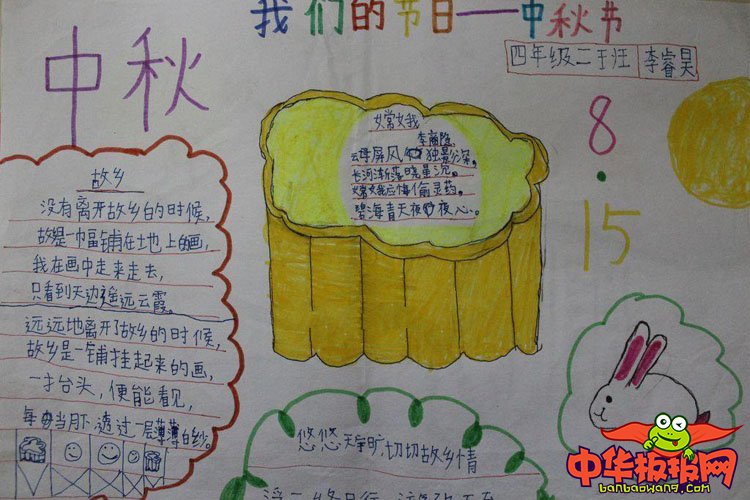 我们的节日——中秋节
四年级二班 李睿昊
中秋
8.15
嫦娥
李商隐
云母屏风 独影深。
长河渐落晓星沉。
嫦娥应悔偷灵药。
碧海青天夜夜心。
故乡
没有离开故乡的时候,
故是一幅铺在土地上的画,
我在画中走来走去,
只看到天边遥远云霞。
远远地离开了故乡的时候,
故乡是一铺挂起来的画,
一才台头,便能看见,
每当月下,透过一层薄薄的纱。
悠悠天宇旷,切切故乡情
中华板报网
banbaowang.com